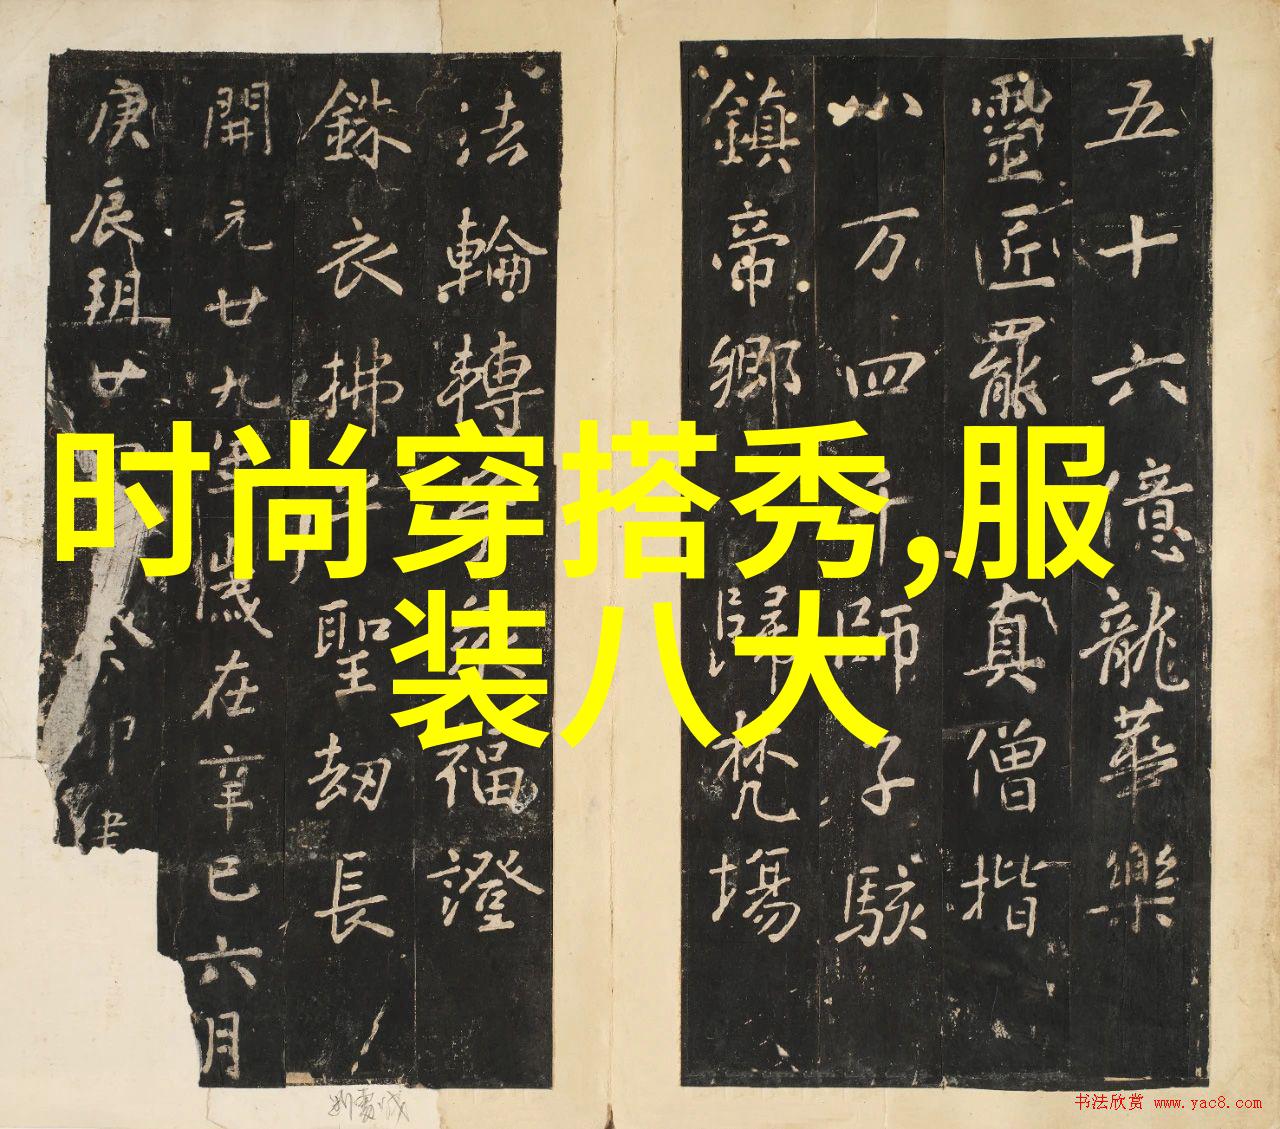 五十六億龍華樂
靈匠羅真僧揩
八万四千師子駭
鎮帝鄉歸梵場
法輪轉福證
銖衣拂聖劫長
開元廿九年歲在辛巳六月
庚辰朔廿癸卯建
时尚穿搭秀,服
装八大
书法欣赏 www.yac8.com